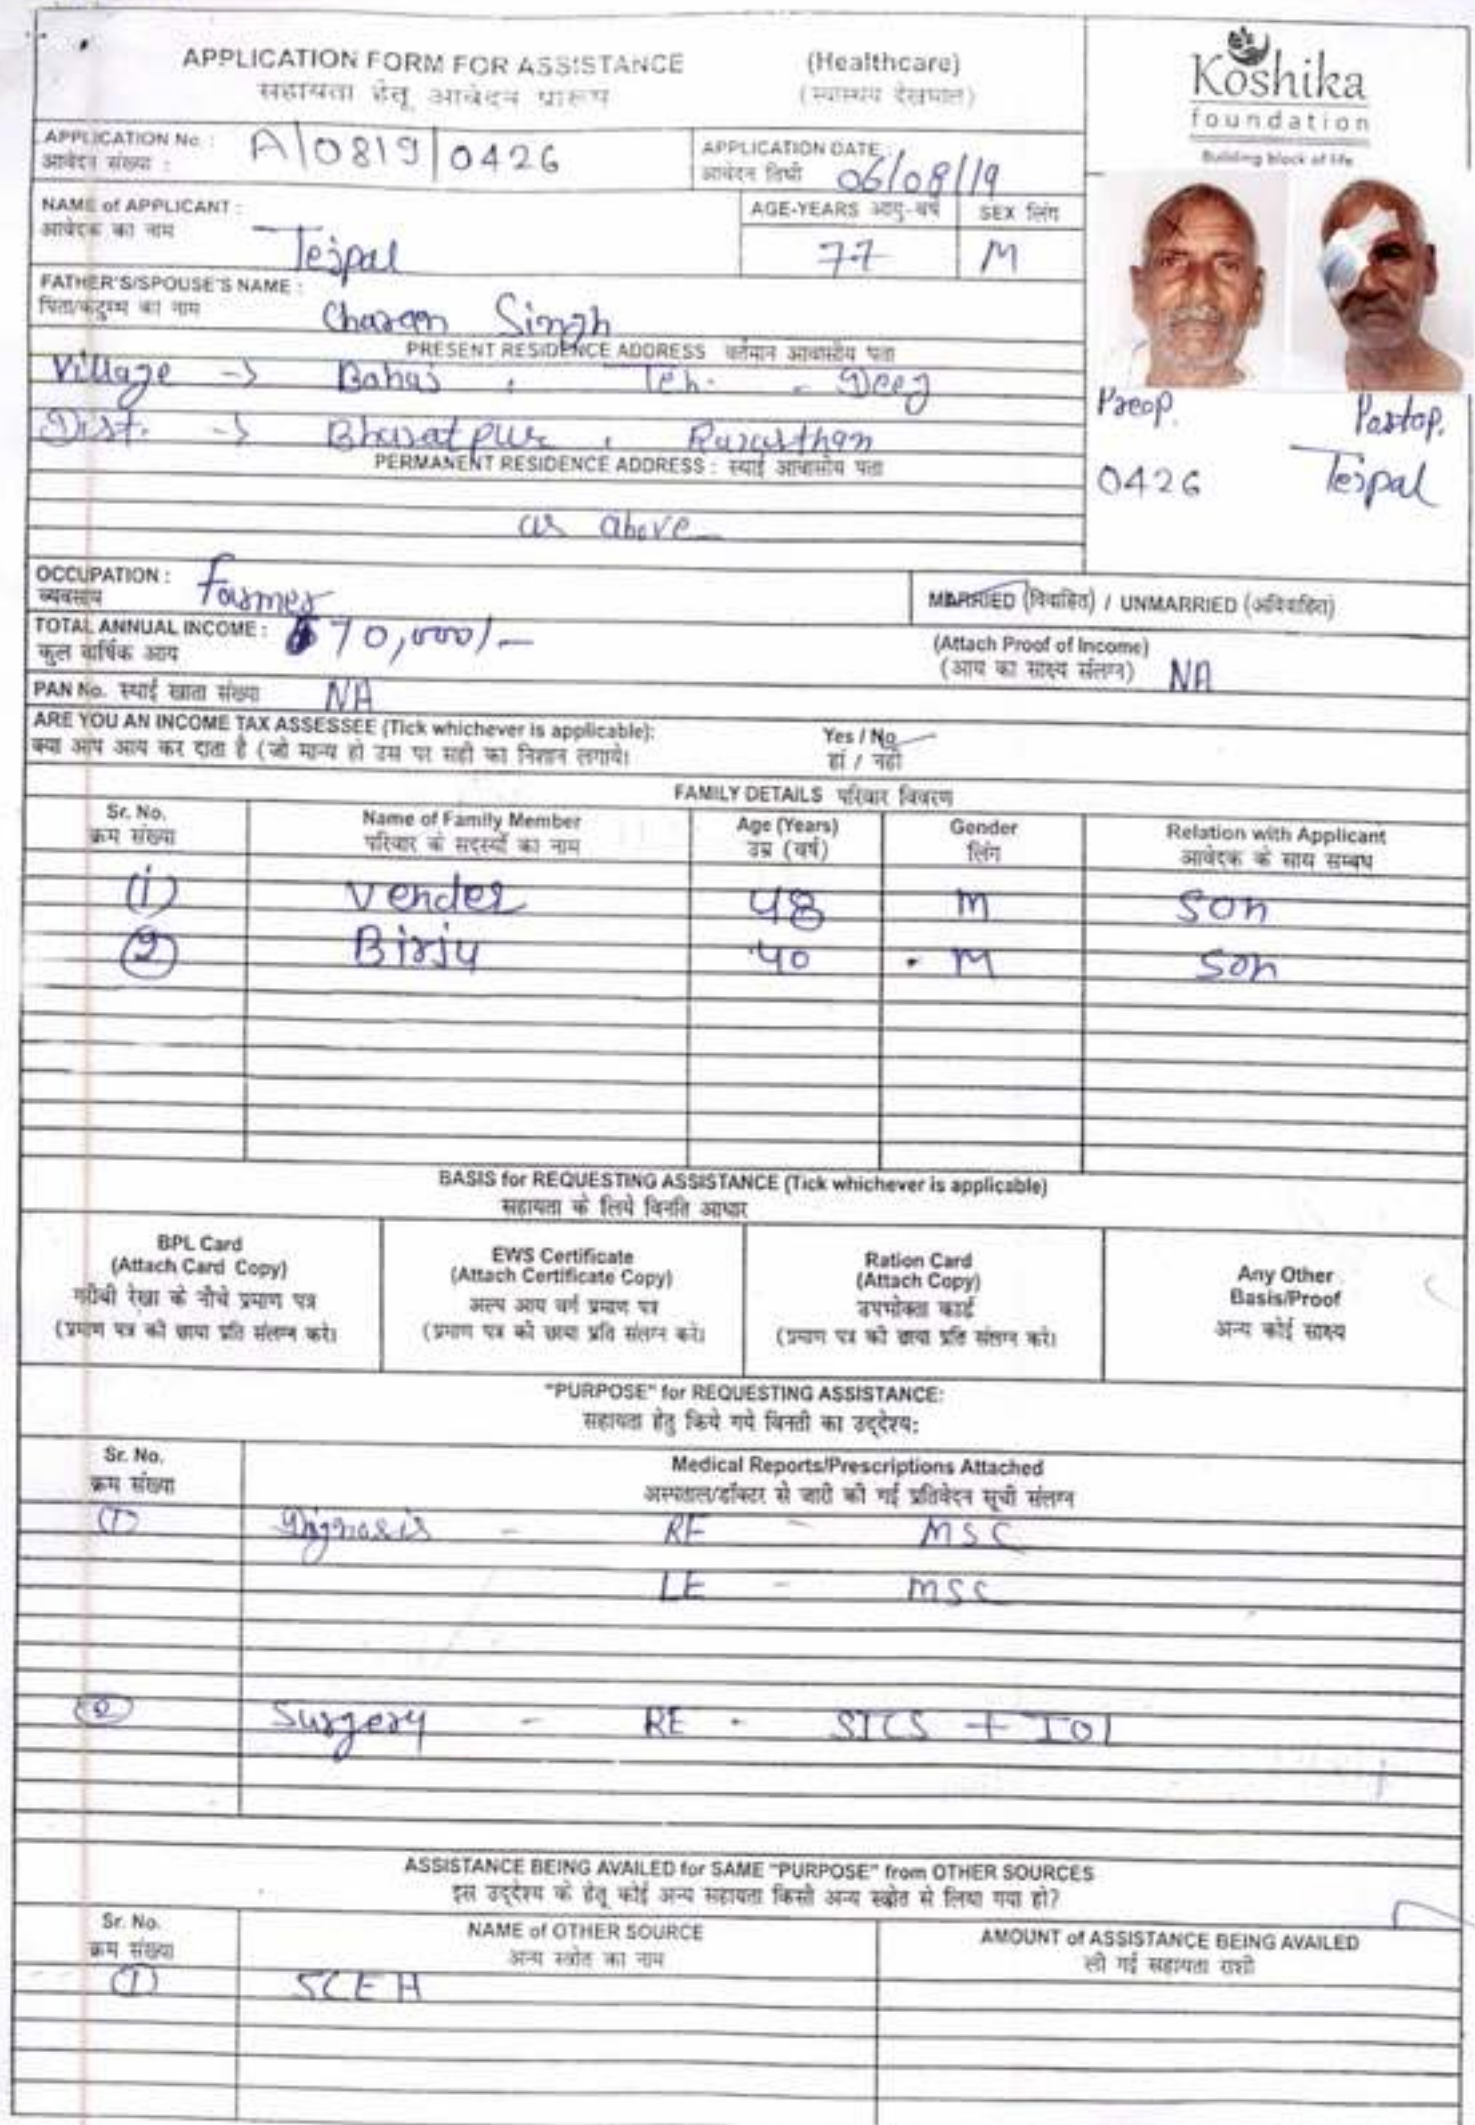 APPLICATION FORM FOR ASSISTANCE (Healthcare)
सहायता हेतू आवेदन प्रारूप (स्वास्थय देखभाल)
Koshika
foundation
Building block of life
APPLICATION No. : A/0819/0426
आवेदन संख्या :
APPLICATION DATE : 06/08/19
आवेदन तिथी
NAME of APPLICANT : Tejpal
आवेदक का नाम
AGE-YEARS आयु-वर्ष SEX लिंग
77 M
FATHER'S/SPOUSE'S NAME : Charan Singh
पिता/कटुम्भ का नाम
PRESENT RESIDENCE ADDRESS वर्तमान आवासीय पता
Village -> Bahaj , Teh. - Deeg
Dist. -> Bharatpur , Rajasthan
PERMANENT RESIDENCE ADDRESS : स्थाई आवासीय पता
as above
Preop. Postop.
0426 Tejpal
OCCUPATION : Farmer
व्यवसाय
MARRIED (विवाहित) / UNMARRIED (अविवाहित)
TOTAL ANNUAL INCOME : 70,000/-
कुल वार्षिक आय
(Attach Proof of Income)
(आय का साक्ष्य संलग्न) NA
PAN No. स्थाई खाता संख्या NA
ARE YOU AN INCOME TAX ASSESSEE (Tick whichever is applicable): Yes / No
क्या आप आय कर दाता है (जो मान्य हो उस पर सही का निशान लगाये। हां / नही
FAMILY DETAILS परिवार विवरण
Sr. No. Name of Family Member Age (Years) Gender Relation with Applicant
क्रम संख्या परिवार के सदस्यों का नाम उम्र (वर्ष) लिंग आवेदक के साथ सम्बध
(1) Vender 48 M Son
(2) Birju 40 M Son
BASIS for REQUESTING ASSISTANCE (Tick whichever is applicable)
सहायता के लिये विनति आधार
BPL Card
(Attach Card Copy)
गरीबी रेखा के नीचे प्रमाण पत्र
(प्रमाण पत्र की छाया प्रति संलग्न करे।
EWS Certificate
(Attach Certificate Copy)
अल्प आय वर्ग प्रमाण पत्र
(प्रमाण पत्र की छाया प्रति संलग्न करे।
Ration Card
(Attach Copy)
उपभोक्ता कार्ड
(प्रमाण पत्र की छाया प्रति संलग्न करे।
Any Other
Basis/Proof
अन्य कोई साक्ष्य
"PURPOSE" for REQUESTING ASSISTANCE:
सहायता हेतु किये गये विनती का उद्देश्य:
Sr. No. Medical Reports/Prescriptions Attached
क्रम संख्या अस्पताल/डॉक्टर से जारी की गई प्रतिवेदन सूची संलग्न
(1) Dignosis - RE - MSC
LE - MSC
(2) Surgery - RE - SICS + IOL
ASSISTANCE BEING AVAILED for SAME "PURPOSE" from OTHER SOURCES
इस उद्देश्य के हेतू कोई अन्य सहायता किसी अन्य स्त्रोत से लिया गया हो?
Sr. No. NAME of OTHER SOURCE AMOUNT of ASSISTANCE BEING AVAILED
क्रम संख्या अन्य स्त्रोत का नाम ली गई सहायता राशी
(1) SCEH